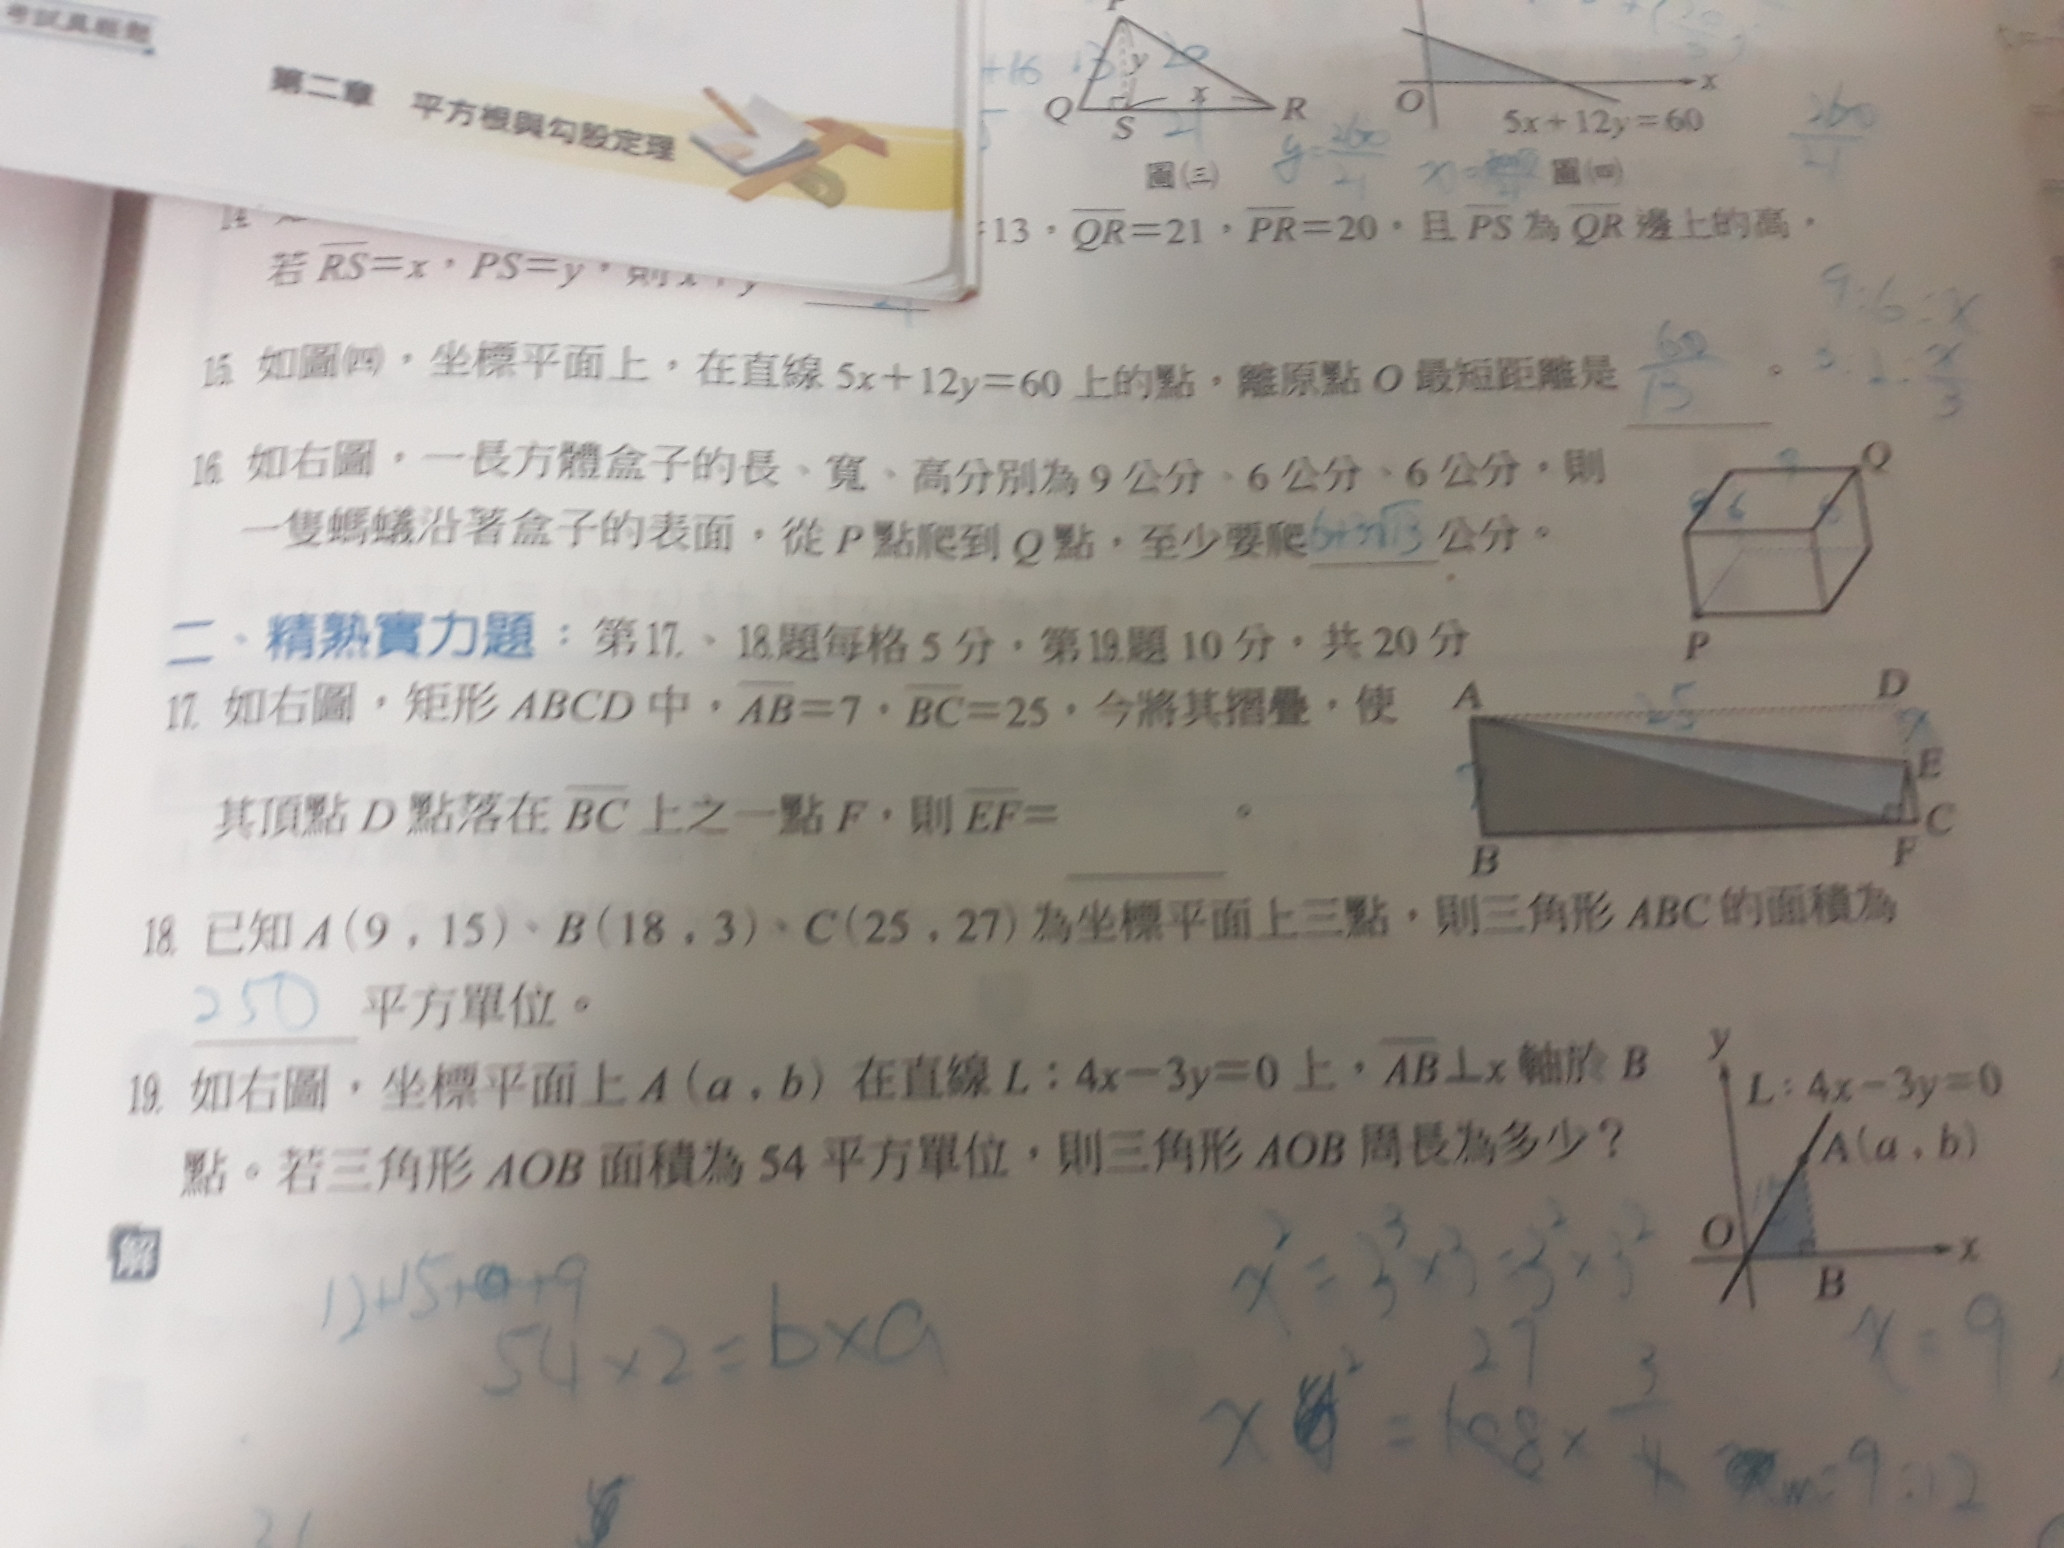 第二章 平方根與勾股定理
P
13
y
20
x
Q
S
21
R
圖㈢
O
x
5x+12y=60
圖㈣
260
21
=13，QR=21，PR=20，且PS為QR邊上的高，
若RS=x，PS=y，則x+y
15. 如圖㈣，坐標平面上，在直線5x+12y=60上的點，離原點O最短距離是 60/13 。
9:6=x
16. 如右圖，一長方體盒子的長、寬、高分別為9公分、6公分、6公分，則
一隻螞蟻沿著盒子的表面，從P點爬到Q點，至少要爬6+3√13公分。
Q
P
二、精熟實力題：第17.、18.題每格5分，第19.題10分，共20分
17. 如右圖，矩形ABCD中，AB=7，BC=25，今將其摺疊，使
其頂點D點落在BC上之一點F，則EF= 。
A
25
D
x
E
7
C
B
F
18. 已知A(9，15)、B(18，3)、C(25，27)為坐標平面上三點，則三角形ABC的面積為
250 平方單位。
19. 如右圖，坐標平面上A(a，b)在直線L：4x−3y=0上，AB⊥x軸於B
點。若三角形AOB面積為54平方單位，則三角形AOB周長為多少？
y
L：4x−3y=0
A(a，b)
O
B
x
解
12+15+9
54×2=b×a
x=9
27
=108×3/4
=9:12